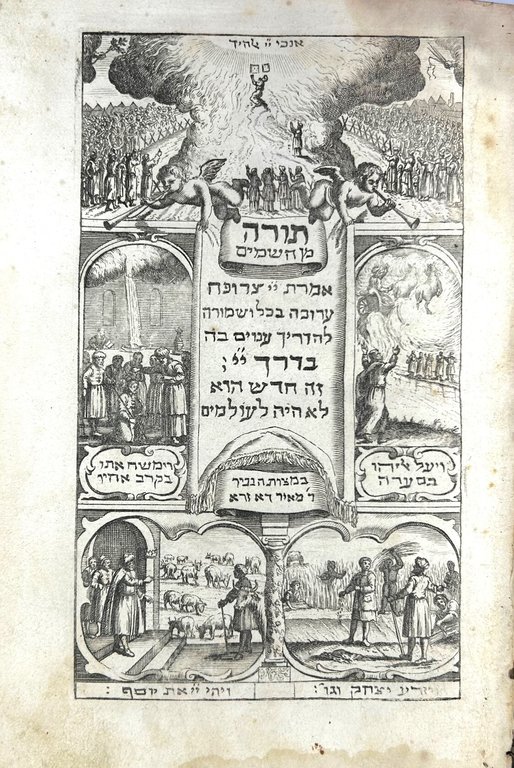 אנכי יי אלהיך
תורה
מן השמים
אמרת יי צרופה
ערוכה בכל ושמורה
להדריך ענוים בה
בדרך יי ;
זה חדש הוא
לא היה לעולמים
וימשח אתו
בקרב אחיו
ויעל אליהו
בסערה
במצות הגביר
ר מאיר דא זרא
ויהי יי את יוסף :
ויזרע יצחק וגו :